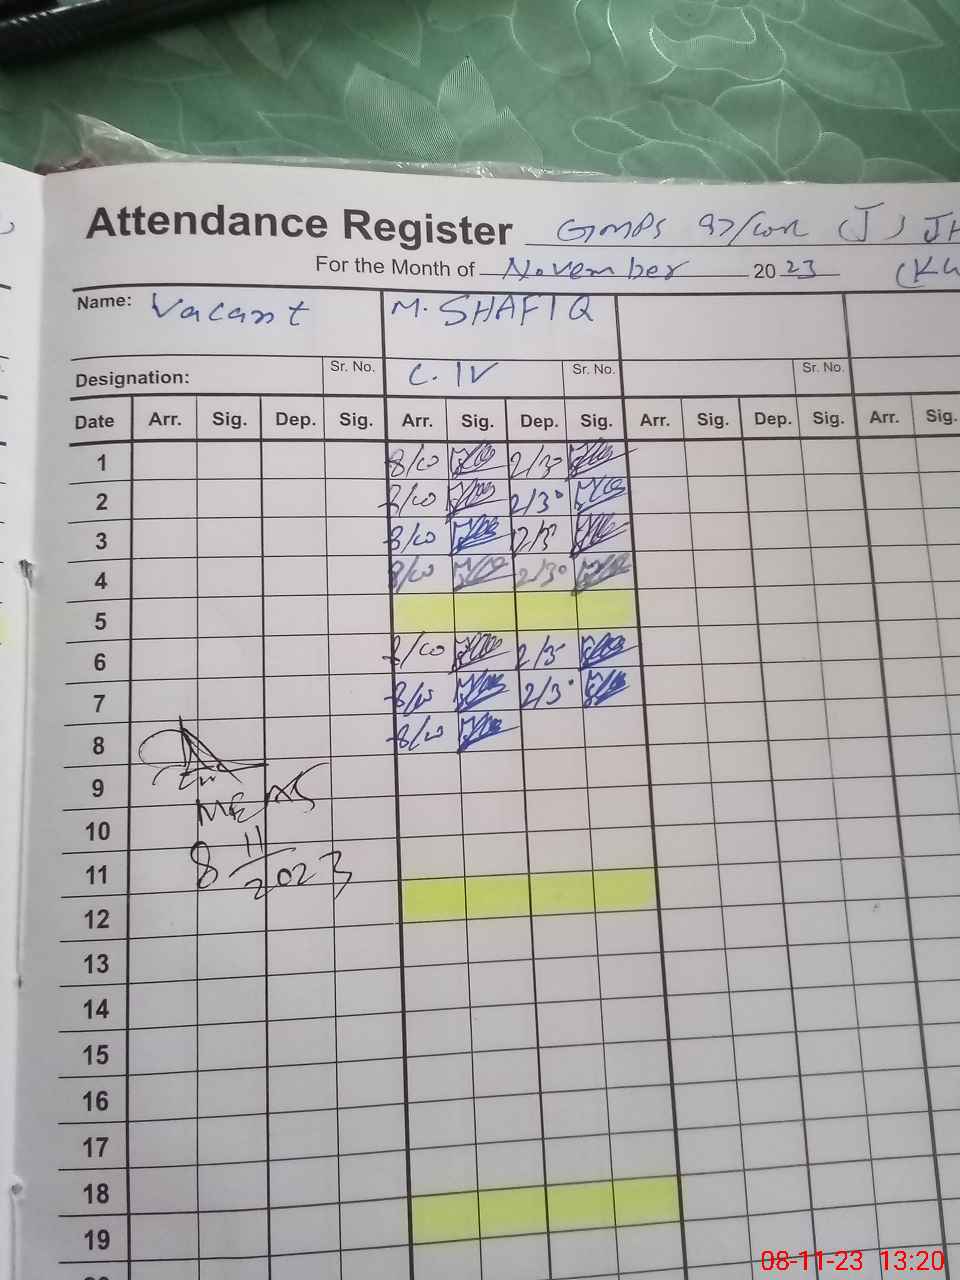 Attendance Register GMPS 97/WR (J) JH
For the Month of November 2023 (KW
Name: Vacant M. SHAFIQ
Designation: Sr. No. C. IV Sr. No. Sr. No.
Date Arr. Sig. Dep. Sig. Arr. Sig. Dep. Sig. Arr. Sig. Dep. Sig. Arr. Sig.
1 8/00 2/30
2 8/00 2/30
3 8/00 2/30
4 8/00 2/30
5
6 8/00 2/30
7 8/00 2/30
8 8/00
9
10
8 11/2023
11
12
13
14
15
16
17
18
19
08-11-23 13:20